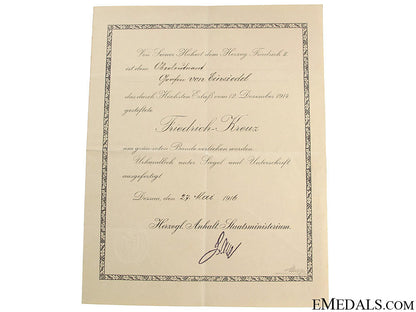 Von Seiner Hoheit dem Herzog Friedrich II
ist dem Oberleutnant
Grafen von Einsiedel
das durch Höchsten Erlaß vom 12. Dezember 1914
gestiftete
Friedrich-Kreuz
am grün-roten Bande verliehen worden.
Urkundlich unter Siegel und Unterschrift
ausgefertigt
Dessau, den 27. Mai 1916
Herzogl. Anhalt. Staatsministerium.
EMEDALS.COM